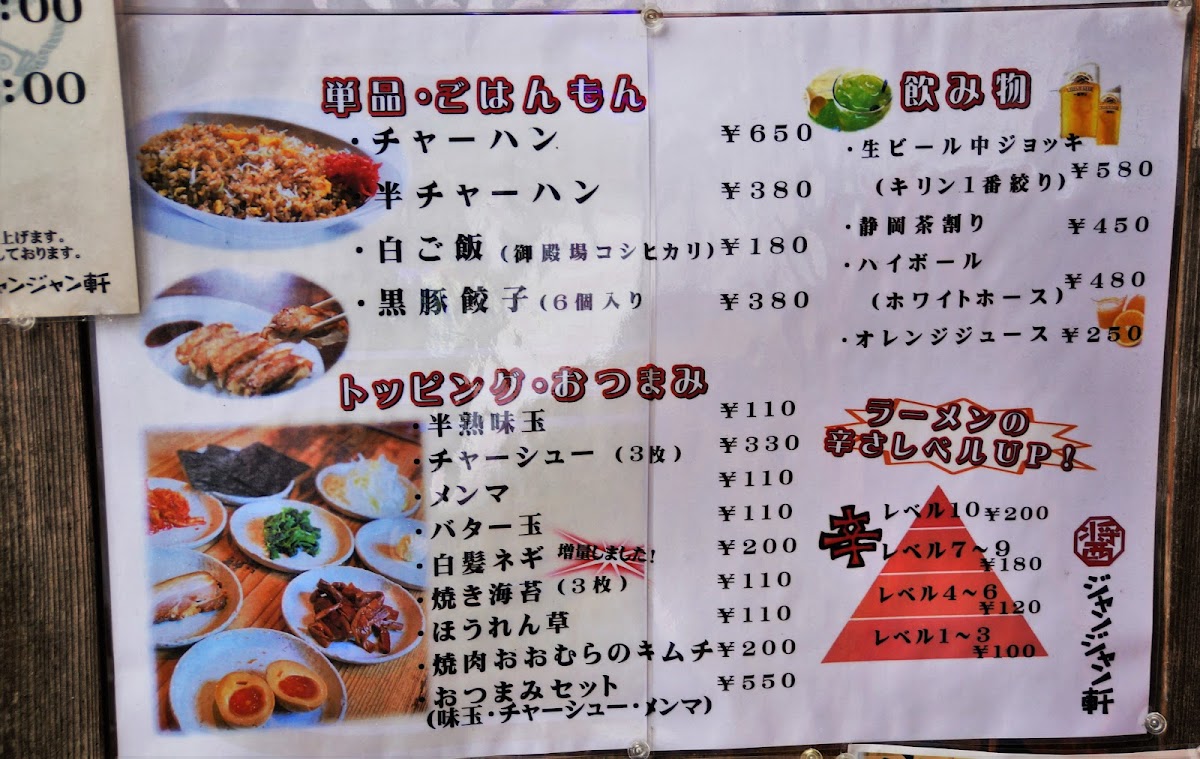 :00
:00
上げます。
しております。
ャンジャン軒
単品・ごはんもん
・チャーハン ¥650
半チャーハン ¥380
・白ご飯(御殿場コシヒカリ) ¥180
・黒豚餃子(6個入り ¥380
トッピング・おつまみ
・半熟味玉 ¥110
・チャーシュー(3枚) ¥330
・メンマ ¥110
・バター玉 ¥110
・白髪ネギ 増量しました! ¥200
・焼き海苔(3枚) ¥110
・ほうれん草 ¥110
・焼肉おおむらのキムチ ¥200
・おつまみセット ¥550
(味玉・チャーシュー・メンマ)
飲み物
・生ビール中ジョッキ
(キリン1番絞り) ¥580
・静岡茶割り ¥450
・ハイボール
(ホワイトホース) ¥480
・オレンジジュース ¥250
ラーメンの
辛さレベルUP!
辛
レベル10 ¥200
レベル7~9
¥180
レベル4~6
¥120
レベル1~3
¥100
ジャンジャン軒